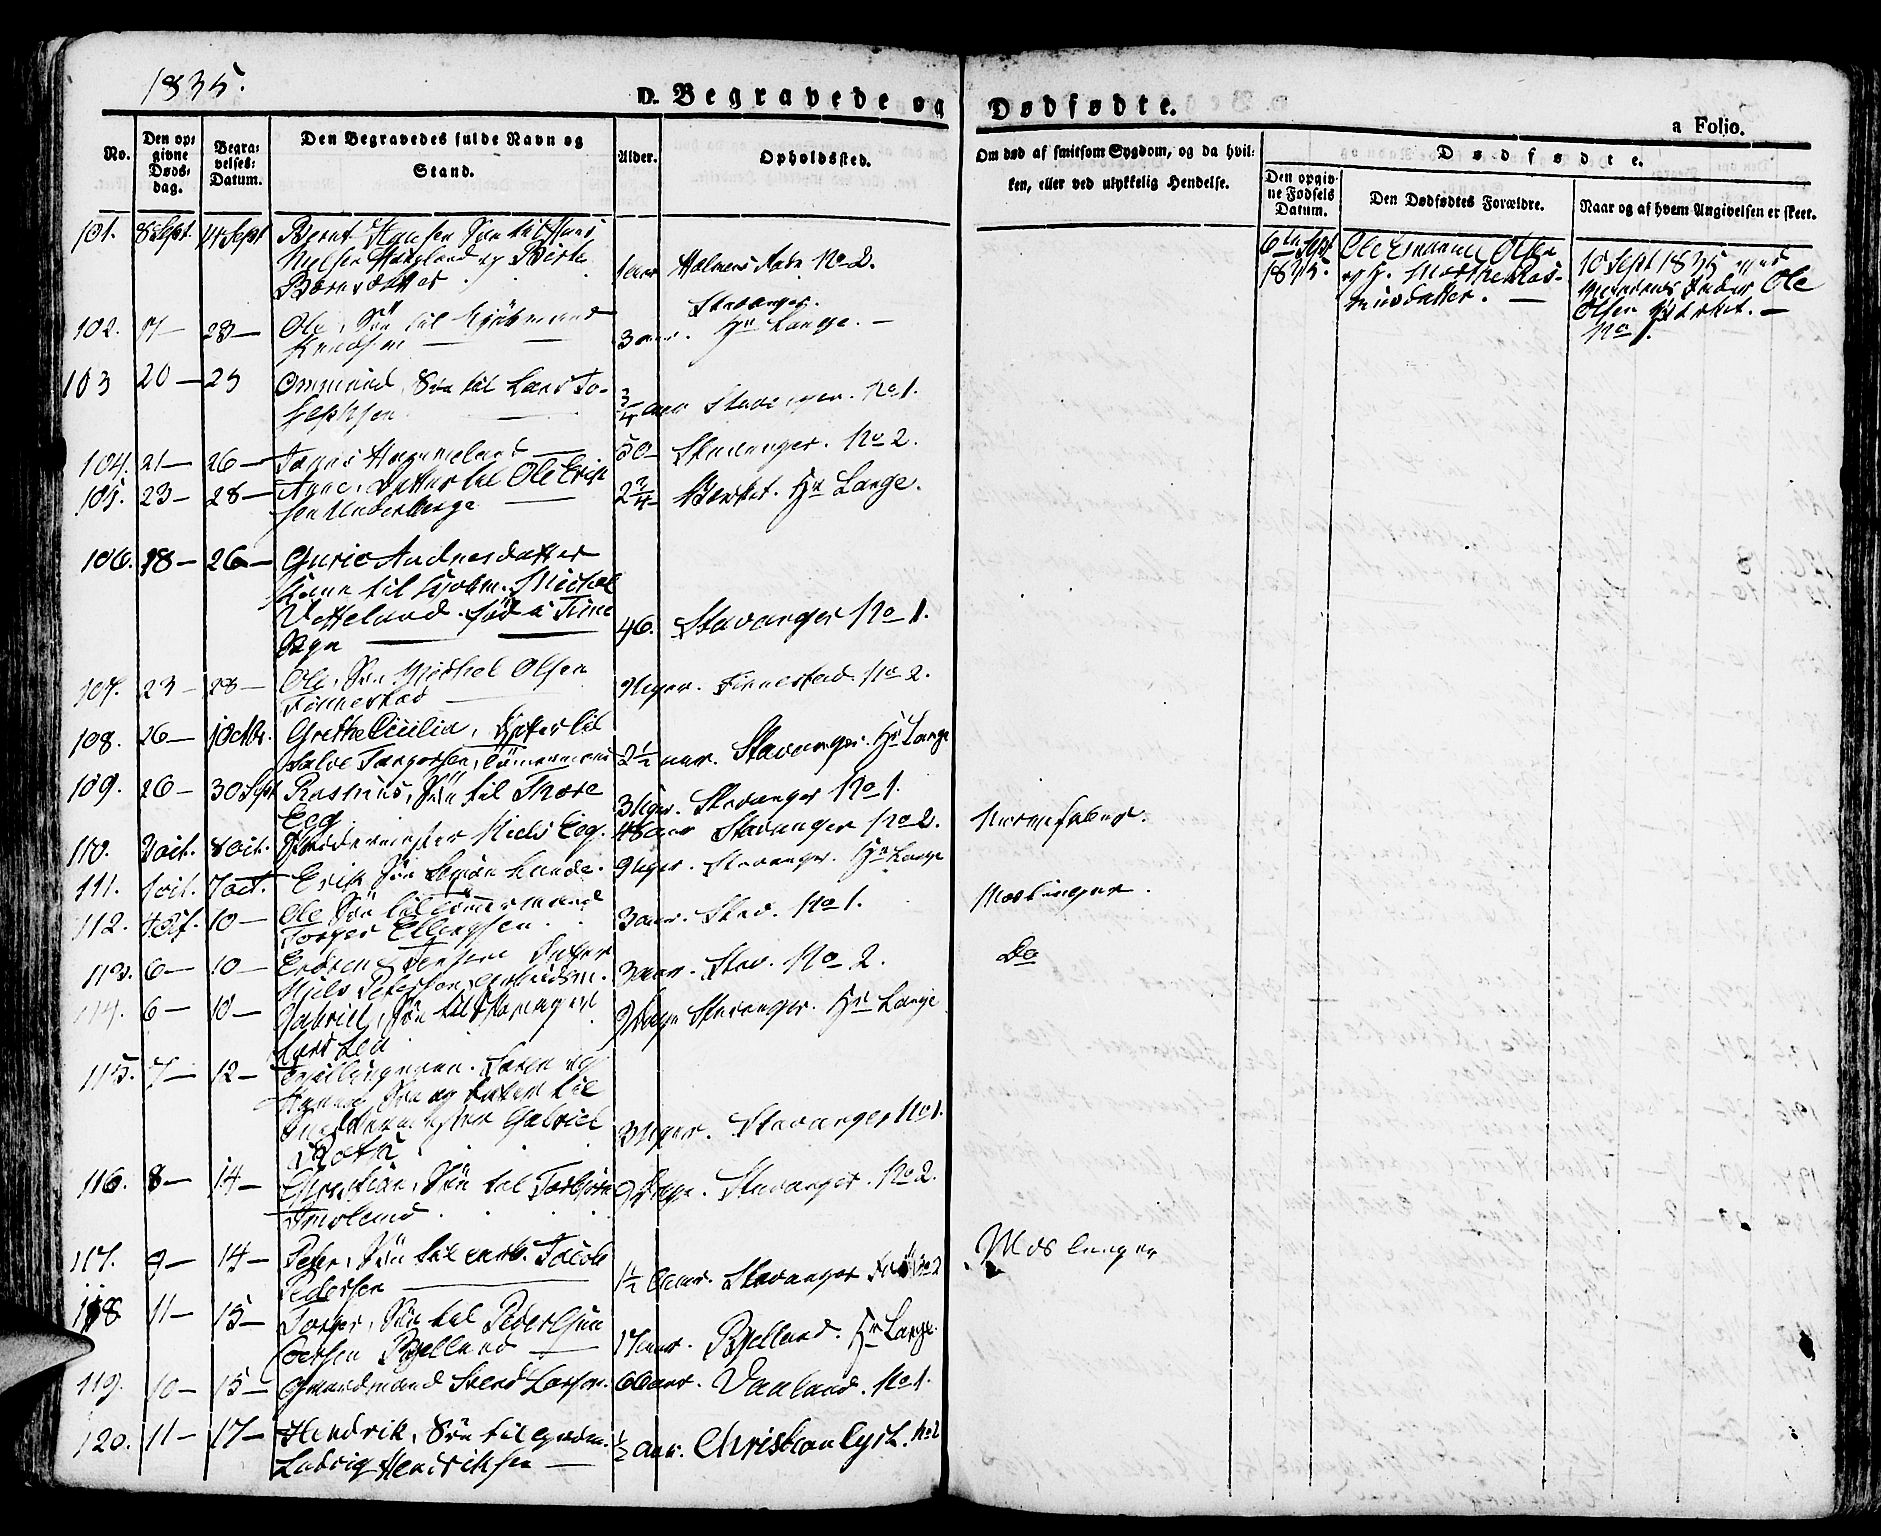 1835.
D. Begravede og Dødfødte.
a Folio.
No.
Den opgivne Dødsdag.
Begravelses-Datum.
Den Begravedes fulde Navn og Stand.
Alder.
Opholdssted.
Om død af smitsom Sygdom, og da hvilken, eller ved ulykkelig Hendelse.
Dødfødte.
Den opgivne Fødsels Datum.
Den Dødfødtes Forældre.
Naar og af hvem Angivelsen er skeet.
101. 8 Sept. 14 Sept Bernt Hansen Søn til Hans
Nielsen og Birthe
1 aar Holmens Rode No 2.
6te Sept 1835. Ole Emanuel Olsen
og H. Marthe Rasmusdatter. —
10 Sept 1835 ved
Fader Ole
Olsen
No 1.
102. 17 — 23 — Ole, Søn til Kjøbmand
Knudsen —
3 aar. Stavanger. Hr Lange. —
103 20 — 25 Ommund, Søn til Lars Josephsen —
3/4 aar Stavanger. No 1.
104. 21 — 26 — —
50 — Stavanger. No 2.
105. 23 — 28 — Anne, Datter til Ole Erik
sen Underberge —
2 3/4 — Hr Lange.
106. 18 — 26 — Gurie Andersdatter
Kone til Michel
Vetteland. fød i Time
Sogn —
46. Stavanger No 1.
107. 23 — 28 — Ole, Søn Michel Olsen
Finnestad —
9 Uger. Finnestad. No 2.
108. 26 — 1 Octbr. Grethe Cicilia, Datter til
Salve Torgersen, Tømermand
2 1/2 aar. Stavanger. Hr Lange
109. 26 — 30 Sept Rasmus, Søn til Thore
Eeg.
3 Uger. Stavanger No 1.
110. 3 oct. 8 oct. Niels Eeg. 48 aar Stavanger No 2. Nervefeber.
111. 1 oct. 7 oct. Erik Søn Lunde. 9 Uger. Stavanger. Hr Lange
112. 4 Oct. 10 — Ole Søn til Tømmermand
Torger Ellingsen.
3 aar. Stav. No 1. Mæslinger.
113. 6 — 10 — Datter
Niels Pedersen, arbeidsm.
3 aar. Stav. No 2. Do
114. 6 — 10 — Gabriel, Søn til Skomager
Lars Lea
9 Dage Stavanger. Hr Lange
115. 7 — 12 — Tvillingerne. Søren og
Søn og Datter til
Gabriel
3 Uger. Stavanger No 1.
116. 8 — 14 — Christian, Søn til Torbjørn
9 Dage. Stavanger. No 2.
117. 9 — 14 — Peter, Søn til arb. Jacob
Pedersen —
1 1/2 aar. Stavanger No 2 Mæslinger
118 11 — 15 — Torger, Søn til Peder Gun
dersen Bjelland —
17 aar. Bjelland. Hr Lange.
119. 10 — 15 — Gaardmand Svend Larsen. 66 aar. Vaaland. No 1.
120. 11 — 17 — Hendrik, Søn til
Ludvig Hendriksen —
1/2 aar. Christian Lyst. No 2